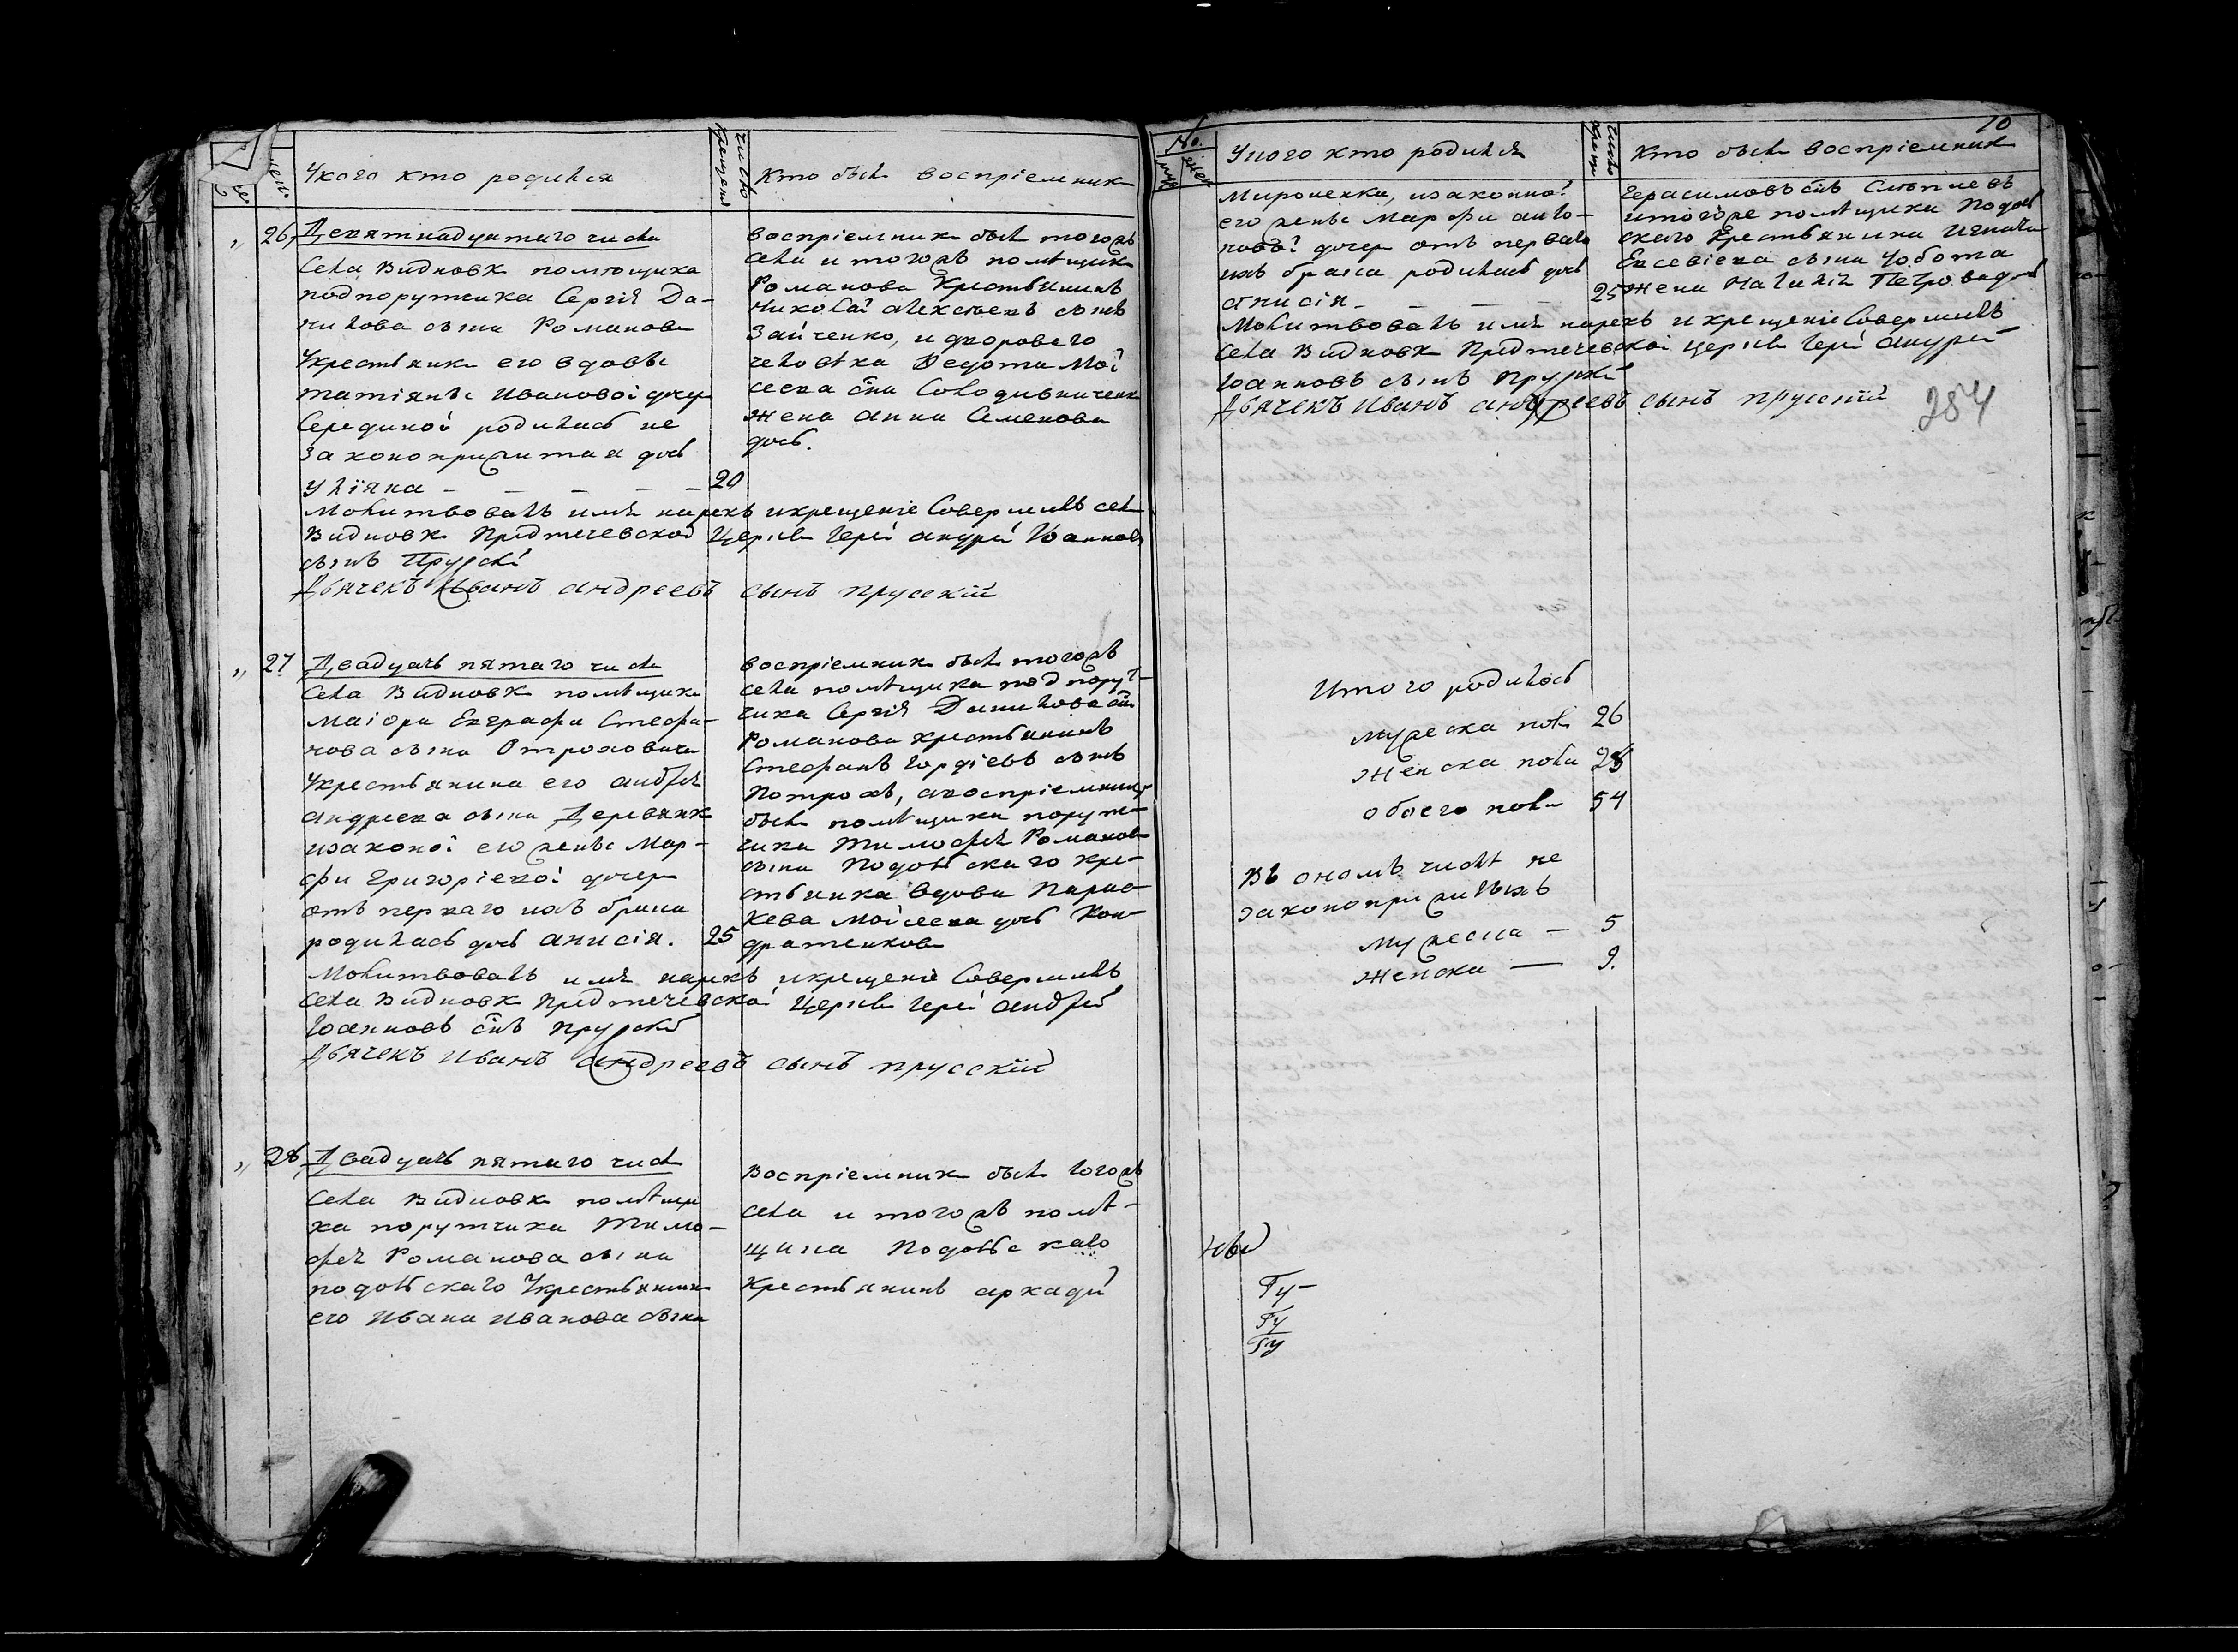 Укого кто родился
число крещенія
Кто былъ воспріемникъ
26
Девятнадцатаго числа
Села Видновк помющика
подпорутчика Сергія Да-
нилова сына Романова
Укрестьянки его вдовы
татіяны Ивановоі дочери
Серединой родилась не
законоприжитая дочь
Уліяна
20
воспріемникъ былъ тогожъ
села и тогожъ помѣщика
Романова Крестьянинъ
Николай алексѣевъ сынъ
Зайченко, и дворового
человѣка Федота Моі
сеева сна
жена анна Семенова
дочь.
Молитвовалъ имя нарекъ икрещеніе Совершилъ села
Видновк Предтечевской Церкви Іерей андрей Іоанновъ
сынъ Прускі
Дьячекъ Иванъ андреевъ сынъ прусскій
27
Двадцать пятаго числа
Села Видновк помѣщика
маіора Евграфа Стефа-
нова сына Отроховича
Укрестьянина его андрея
андреева сына Деревянк
изаконоі его жены Мар-
фы Григоріевоі дочери
отъ перваго ихъ брака
родилась дочь анисія.
25
воспріемникъ былъ тогожъ
села помѣщика подпору-
чика Сергія Данилова сна
Романова крестьянинъ
Стефанъ Гордіевъ сынъ
Потрохъ, авоспріемница
была помѣщика порут-
чика Тимофея Романова
сына Подольскаго кре-
стьянка вдова Парас-
кева Моісеева дочь Кон-
дратенкова
Молитвовалъ имя нарекъ икрещеніе Совершилъ
Села Видновк Предтечевскоі Церкви Іерей андрей
Іоанновъ снъ прускі
Дьячекъ Иванъ андреевъ сынъ прусскій
28
Двадцать пятаго числа
Села Видновк помѣщи
ка порутчика Тимо-
фея Романова сына
подольскаго Укрестьянина
его Ивана Иванова сына
Воспріемникъ былъ тогожъ
села и тогожъ помѣ-
щика Подольскаго
Крестьянинъ аркадій
10
Укого кто родился
число
Кто былъ воспріемникъ
Мироненка, изаконноі
его жены Марфы
дочери отъ перваго
ихъ брака родилась дочь
анисія
25
Герасимовъ снъ
итогоже помѣщика Подоль
скаго Крестьянина Игната
Евсевіева сына Чобота
жена Наталія Петрова дочь
Молитвовалъ имя нарекъ икрещеніе Совершилъ
Села Видновк Предтечевскоі церкви Іерей андрей
Іоанновъ сынъ Прускі
Дьячекъ Иванъ андреевъ сынъ прусскій
284
Итого родилось
мужеска пола 26
женска пола 28
обоего пола 54
Въ ономъ числѣ не
законоприжитыхъ
мужеска — 5
женска — 9.
Гу-
Гу
Гу